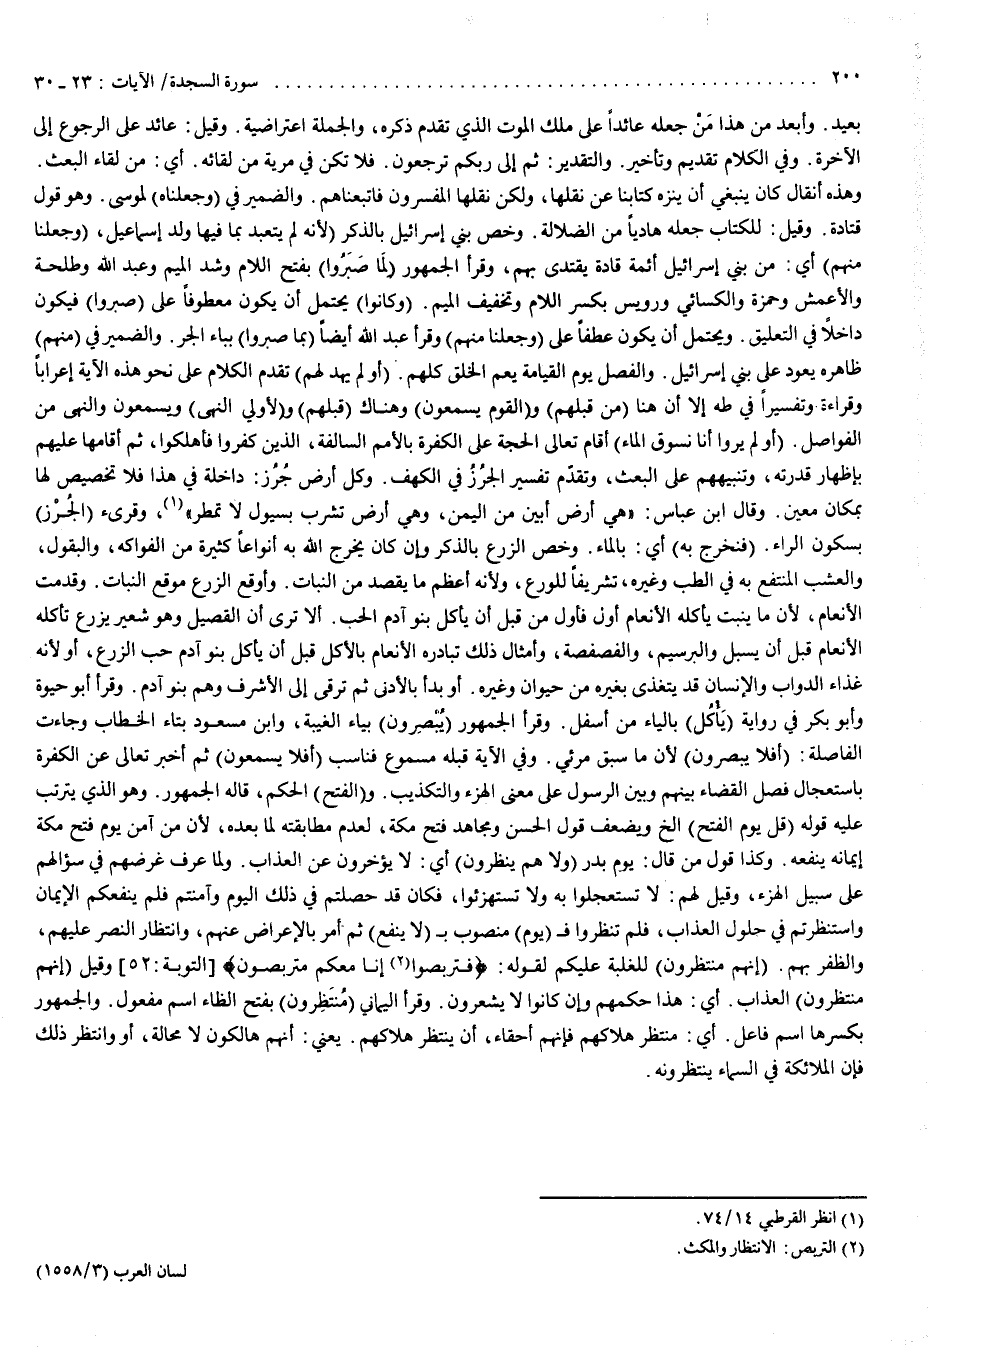 ٢٠٠ . . . . . . . . . . . . . . . . . . . . . . . . . . . . . . . . . . . . . . . . سورة السجدة/ الآيات : ٢٣ ـ ٣٠
بعيد. وأبعد من هذا مَنْ جعله عائداً على ملك الموت الذي تقدم ذكره، والجملة اعتراضية. وقيل: عائد على الرجوع إلى
الآخرة. وفي الكلام تقديم وتأخير. والتقدير: ثم إلى ربكم ترجعون. فلا تكن في مرية من لقائه. أي: من لقاء البعث.
وهذه أنقال كان ينبغي أن ينزه كتابنا عن نقلها، ولكن نقلها المفسرون فاتبعناهم. والضمير في (وجعلناه) لموسى. وهو قول
قتادة. وقيل: للكتاب جعله هادياً من الضلالة. وخص بني إسرائيل بالذكر (لأنه لم يتعبد بما فيها ولد إسماعيل، (وجعلنا
منهم) أي: من بني إسرائيل أئمة قادة يقتدى بهم، وقرأ الجمهور (لَمَّا صَبَرُوا) بفتح اللام وشد الميم وعبد الله وطلحة
والأعمش وحمزة والكسائي ورويس بكسر اللام وتخفيف الميم. (وكانوا) يحتمل أن يكون معطوفاً على (صبروا) فيكون
داخلاً في التعليق. ويحتمل أن يكون عطفاً على (وجعلنا منهم) وقرأ عبد الله أيضاً (بما صبروا) بباء الجر. والضمير في (منهم)
ظاهره يعود على بني إسرائيل. والفصل يوم القيامة يعم الخلق كلهم. (أو لم يهد لهم) تقدم الكلام على نحو هذه الآية إعراباً
وقراءة وتفسيراً في طه إلا أن هنا (من قبلهم) و(القوم يسمعون) وهناك (قبلهم) و(لأولي النهى) ويسمعون والنهى من
الفواصل. (أو لم يروا أنا نسوق الماء) أقام تعالى الحجة على الكفرة بالأمم السالفة، الذين كفروا فأهلكوا، ثم أقامها عليهم
بإظهار قدرته، وتنبيههم على البعث، وتقدّم تفسير الجُرُزُ في الكهف. وكل أرض جُرُز: داخلة في هذا فلا تخصيص لها
بمكان معين. وقال ابن عباس: «هي أرض أبين من اليمن، وهي أرض تشرب بسيول لا تمطر»(١)، وقرىء (الجُرْز)
بسكون الراء. (فنخرج به) أي: بالماء. وخص الزرع بالذكر وإن كان يخرج الله به أنواعاً كثيرة من الفواكه، والبقول،
والعشب المنتفع به في الطب وغيره، تشريفاً للورع، ولأنه أعظم ما يقصد من النبات. وأوقع الزرع موقع النبات. وقدمت
الأنعام، لأن ما ينبت يأكله الأنعام أول فأول من قبل أن يأكل بنو آدم الحب. ألا ترى أن القصيل وهو شعير يزرع تأكله
الأنعام قبل أن يسبل والبرسيم، والفصفصة، وأمثال ذلك تبادره الأنعام بالأكل قبل أن يأكل بنو آدم حب الزرع، أو لأنه
غذاء الدواب والإنسان قد يتغذى بغيره من حيوان وغيره. أو بدأ بالأدنى ثم ترقى إلى الأشرف وهم بنو آدم. وقرأ أبو حيوة
وأبو بكر في رواية (يَأْكُل) بالياء من أسفل. وقرأ الجمهور (يُبْصِرون) بياء الغيبة، وابن مسعود بتاء الخطاب وجاءت
الفاصلة: (أفلا يبصرون) لأن ما سبق مرئي. وفي الآية قبله مسموع فناسب (أفلا يسمعون) ثم أخبر تعالى عن الكفرة
باستعجال فصل القضاء بينهم وبين الرسول على معنى الهزء والتكذيب. و(الفتح) الحكم، قاله الجمهور. وهو الذي يترتب
عليه قوله (قل يوم الفتح) الخ ويضعف قول الحسن ومجاهد فتح مكة، لعدم مطابقته لما بعده، لأن من آمن يوم فتح مكة
إيمانه ينفعه. وكذا قول من قال: يوم بدر (ولا هم ينظرون) أي: لا يؤخرون عن العذاب. ولما عرف غرضهم في سؤالهم
على سبيل الهزء، وقيل لهم: لا تستعجلوا به ولا تستهزئوا، فكان قد حصلتم في ذلك اليوم وآمنتم فلم ينفعكم الإيمان
واستنظرتم في حلول العذاب، فلم تنظروا فـ (يوم) منصوب بـ (لا ينفع) ثم أمر بالإعراض عنهم، وانتظار النصر عليهم،
والظفر بهم. (إنهم منتظرون) للغلبة عليكم لقوله: ﴿فتربصوا(٢) إنا معكم متربصون﴾ [التوبة:٥٢] وقيل (إنهم
منتظرون) العذاب. أي: هذا حكمهم وإن كانوا لا يشعرون. وقرأ اليماني (مُنتَظَرون) بفتح الظاء اسم مفعول. والجمهور
بكسرها اسم فاعل. أي: منتظر هلاكهم فإنهم أحقاء، أن ينتظر هلاكهم. يعني: أنهم هالكون لا محالة، أو وانتظر ذلك
فإن الملائكة في السماء ينتظرونه.
(١) انظر القرطبي ٧٤/١٤.
(٢) التربص: الانتظار والمكث.
لسان العرب (١٥٥٨/٣)